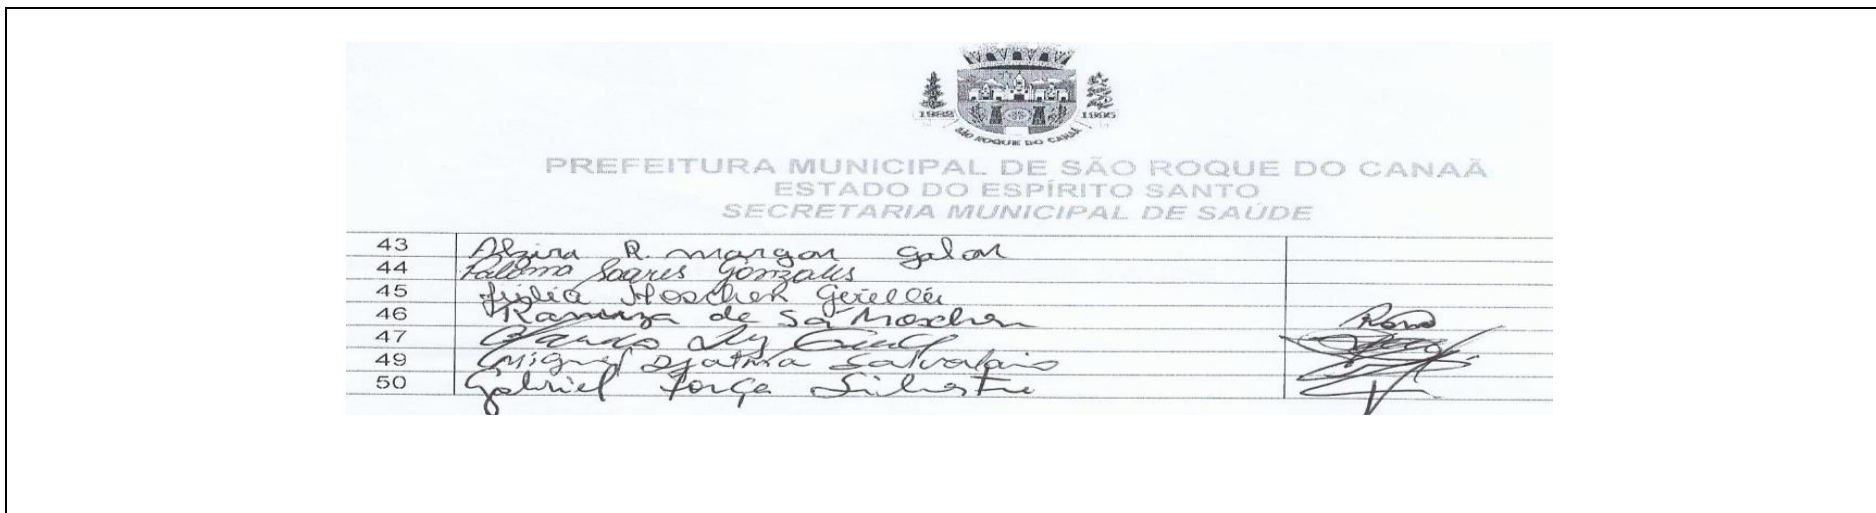 1982 1995
SÃO ROQUE DO CANAÃ
PREFEITURA MUNICIPAL DE SÃO ROQUE DO CANAÃ
ESTADO DO ESPÍRITO SANTO
SECRETARIA MUNICIPAL DE SAÚDE
43 Alzira R. margon galon
44 Paloma Soares Gonzales
45 Moschen
46 de Sá Moschen
47
49 Miguel Djalma
50 Gabriel força Silvestre